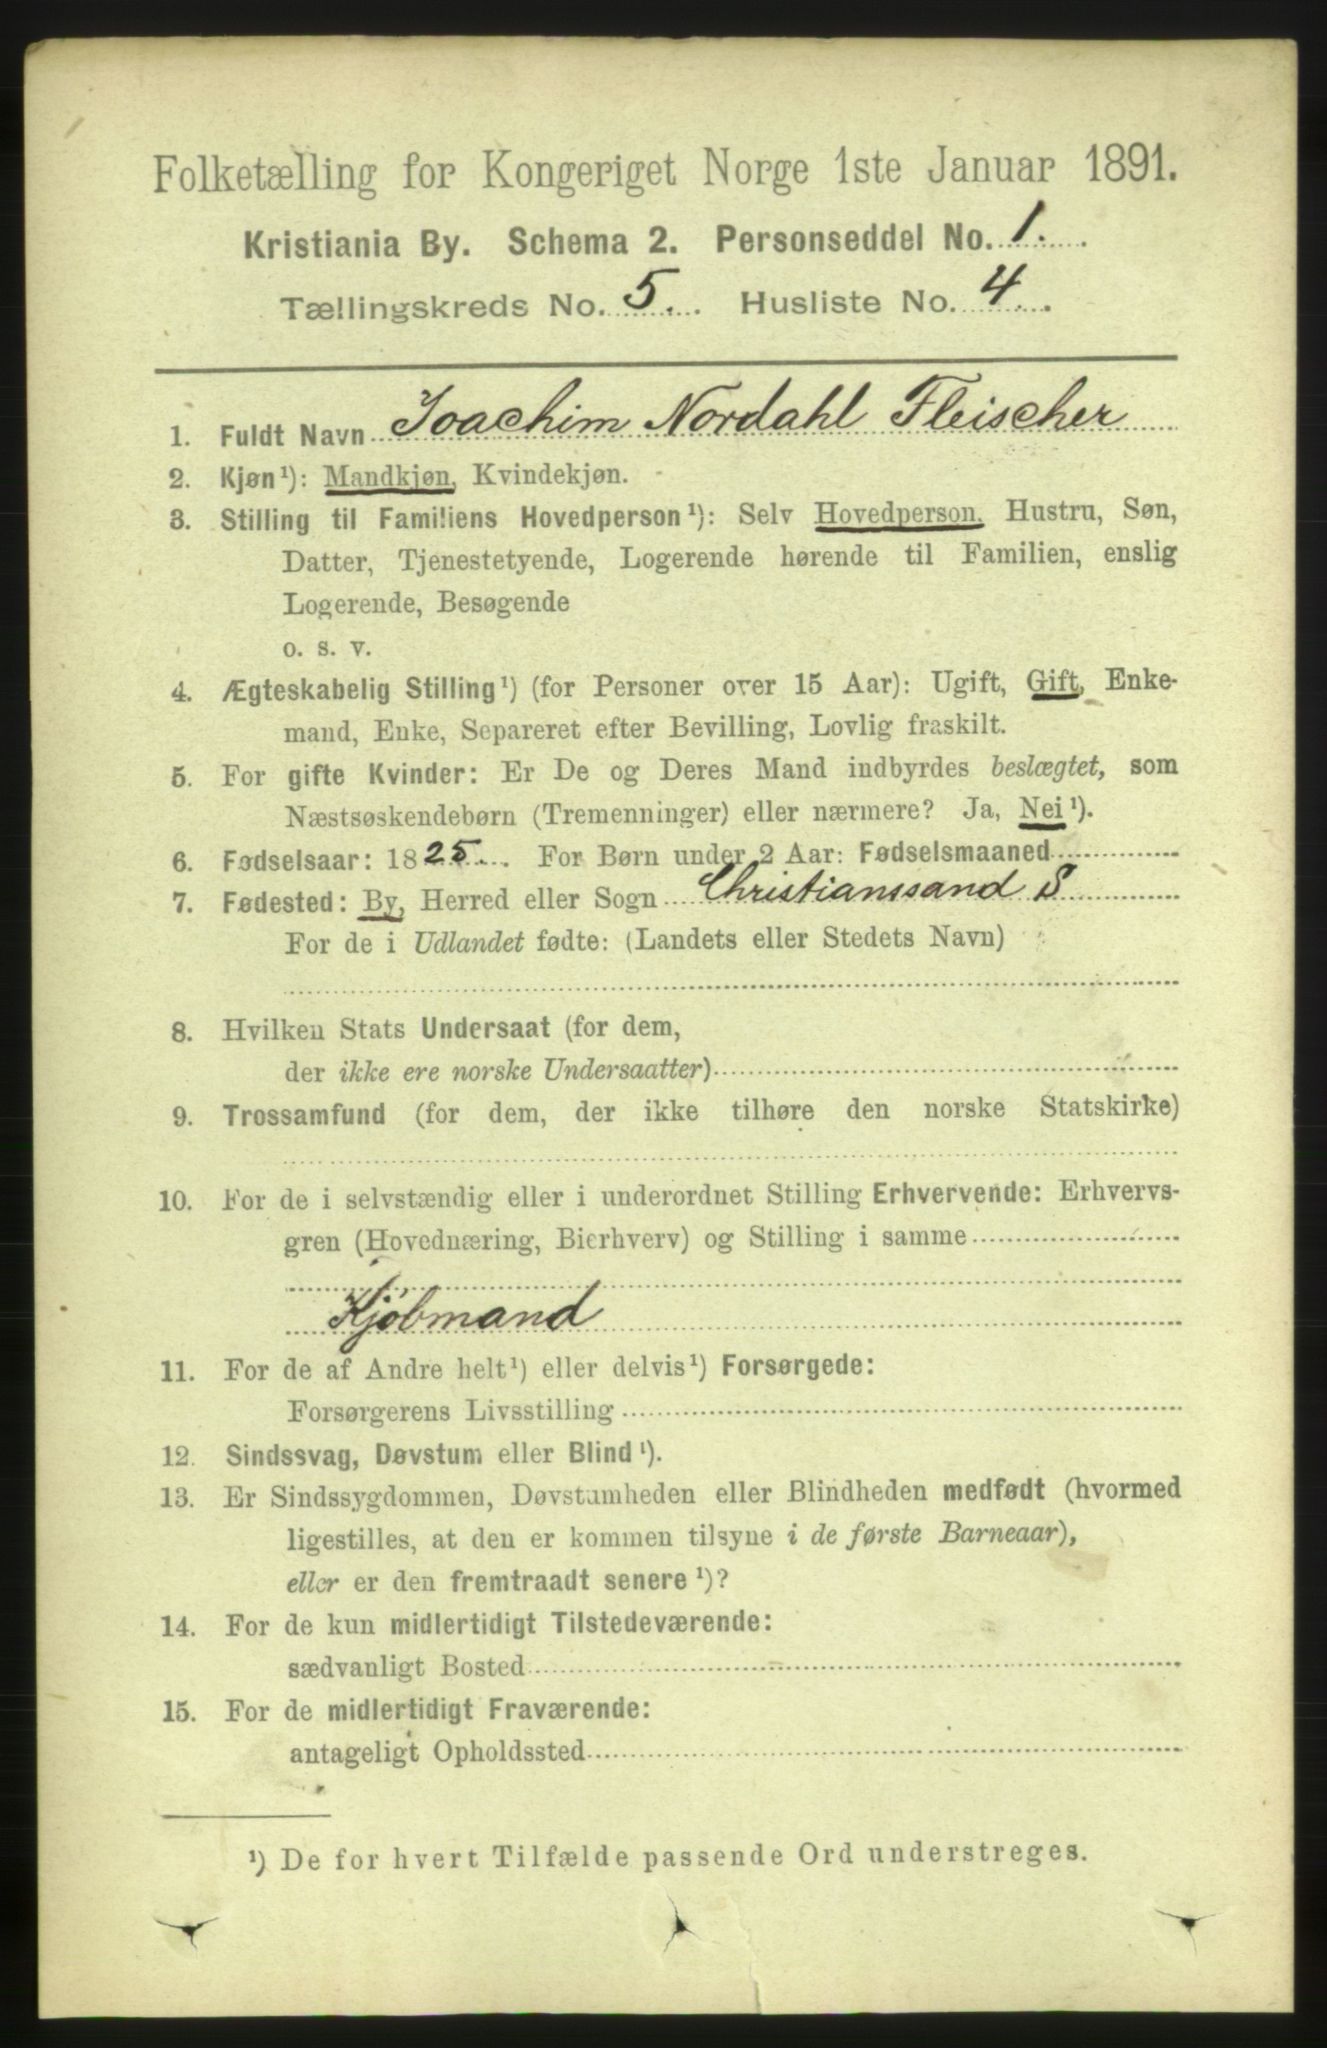 Folketælling for Kongeriget Norge 1ste Januar 1891.
Kristiania By. Schema 2. Personseddel No. 1.
Tællingskreds No. 5. Husliste No. 4.
1. Fuldt Navn Joachim Nordahl Fleischer
2. Kjøn¹): Mandkjøn, Kvindekjøn.
3. Stilling til Familiens Hovedperson¹): Selv Hovedperson, Hustru, Søn,
Datter, Tjenestetyende, Logerende hørende til Familien, enslig
Logerende, Besøgende
o. s. v.
4. Ægteskabelig Stilling¹) (for Personer over 15 Aar): Ugift, Gift, Enke-
mand, Enke, Separeret efter Bevilling, Lovlig fraskilt.
5. For gifte Kvinder: Er De og Deres Mand indbyrdes beslægtet, som
Næstsøskendebørn (Tremenninger) eller nærmere? Ja, Nei¹).
6. Fødselsaar: 1825. For Børn under 2 Aar: Fødselsmaaned
7. Fødested: By, Herred eller Sogn Christianssand S
For de i Udlandet fødte: (Landets eller Stedets Navn)
8. Hvilken Stats Undersaat (for dem,
der ikke ere norske Undersaatter)
9. Trossamfund (for dem, der ikke tilhøre den norske Statskirke)
10. For de i selvstændig eller i underordnet Stilling Erhvervende: Erhvervs-
gren (Hovednæring, Bierhverv) og Stilling i samme
Kjøbmand
11. For de af Andre helt¹) eller delvis¹) Forsørgede:
Forsørgerens Livsstilling
12. Sindssvag, Døvstum eller Blind¹).
13. Er Sindssygdommen, Døvstumheden eller Blindheden medfødt (hvormed
ligestilles, at den er kommen tilsyne i de første Barneaar),
eller er den fremtraadt senere¹)?
14. For de kun midlertidigt Tilstedeværende:
sædvanligt Bosted
15. For de midlertidigt Fraværende:
antageligt Opholdssted
¹) De for hvert Tilfælde passende Ord understreges.